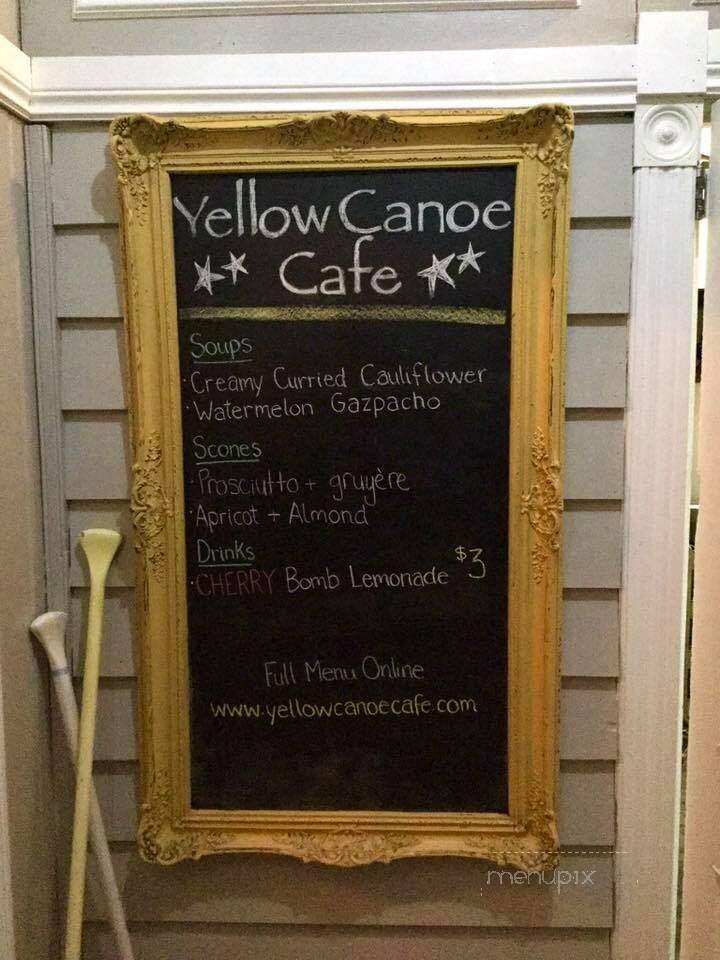 Yellow Canoe
Cafe
Soups
· Creamy Curried Cauliflower
· Watermelon Gazpacho
Scones
· Prosciutto + gruyère
· Apricot + Almond
Drinks
· CHERRY Bomb Lemonade $3
Full Menu Online
www.yellowcanoecafe.com
menupix